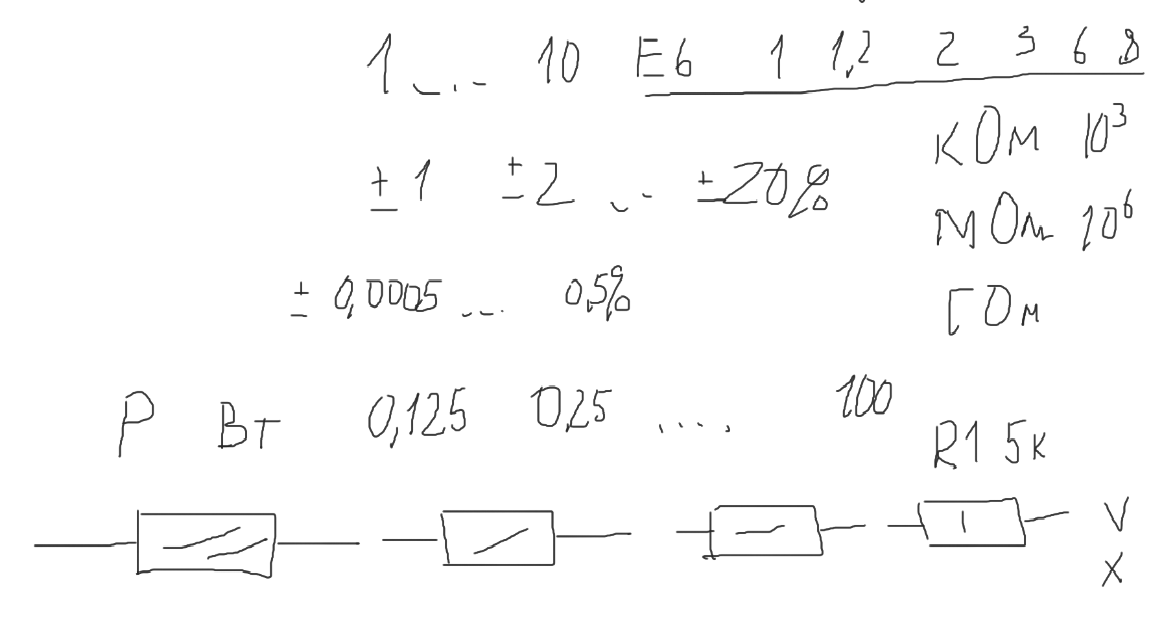 1 ... 10 E6 1 1,2 2 3 6 8
кОм 10³
± 1 ± 2 ... ± 20%
МОм 10⁶
± 0,0005 ... 0,5%
ГОм
P Вт 0,125 0,25 .... 100
R1 5к
V
X